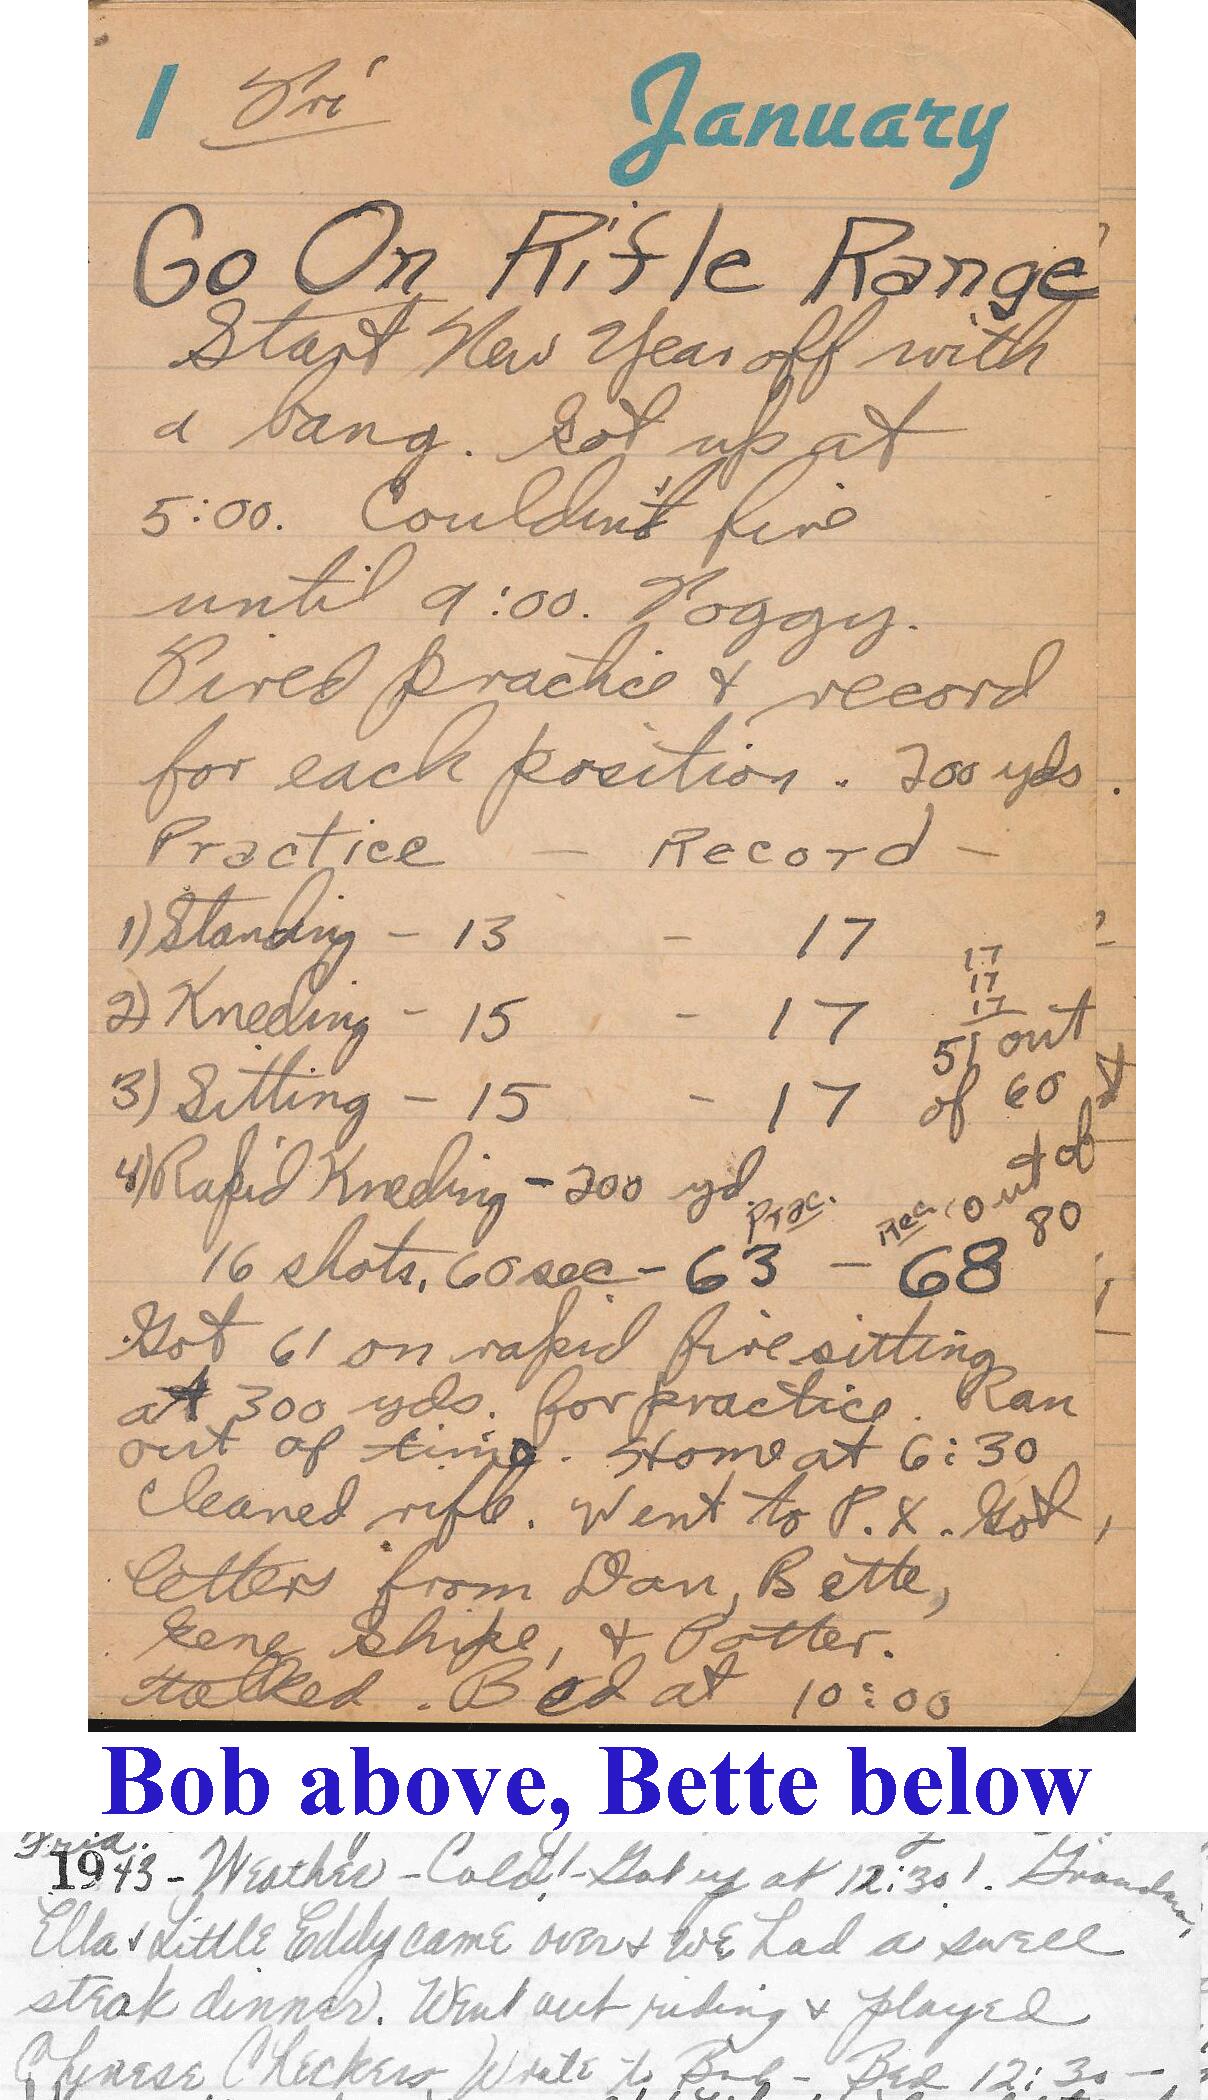 1 Fri January
Go On Rifle Range
Start New Year off with
a bang. Got up at
5:00. Couldn't fire
until 9:00. Foggy.
Fired practice & record
for each position. 200 yds.
Practice — Record —
1) Standing - 13 - 17
17
17
2) Kneeling - 15 - 17
17
51 out
3) Sitting - 15 - 17 of 60
4) Rapid Kneeling - 200 yd.
Prac. Rec. out of
80
16 shots, 60 sec - 63 - 68
Got 61 on rapid fire sitting
at 300 yds. for practice. Ran
out of time. Home at 6:30
Cleaned rifle. Went to P.X. Got
letters from Dan, Bette,
Gene Shipe, & Potter.
talked. Bed at 10:00
Bob above, Bette below
Frid.
1943 - Weather - Cold! - Got up at 12:30!. Grandma,
Ella & Little Eddy came over & we had a swell
steak dinner. Went out riding & played
Chinese Checkers Wrote to Bob - Bed 12:30 -